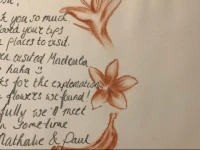 k you so much
loved your tips
places to visit.
visited Madeula
haha
ks for the explanations
flowers we found!
fully we'll meet
sometime
Nathalie & Paul